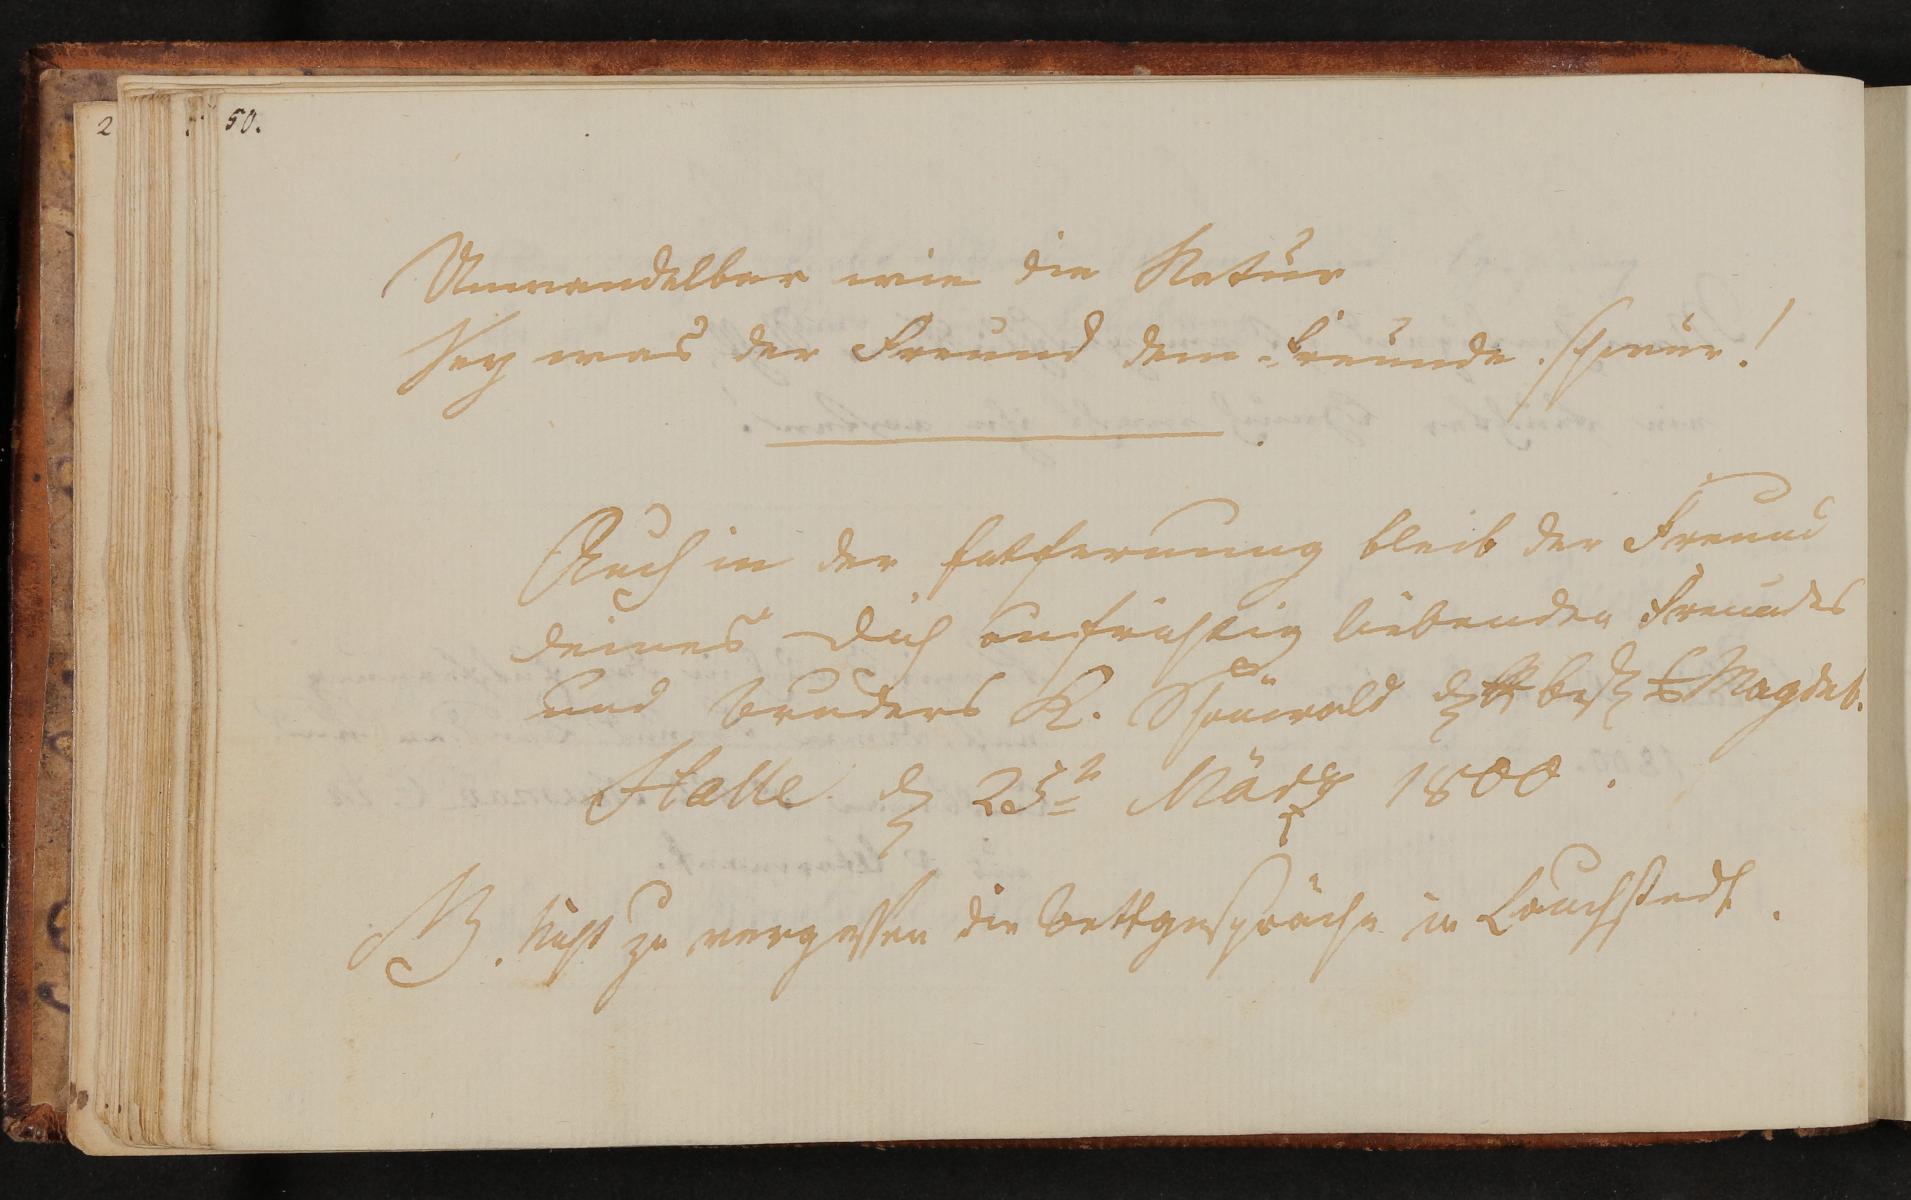 2
50.
Unwandelbar wie die Natur
Sey was der Freund dem Freunde schwur!
Auch in der Entfernung bleib der Freund
deines Dich aufrichtig liebenden Freundes
und Bruders K. Schönwald Magdeb.
Halle d 23n März 1800.
NB. Nicht zu vergessen die Bettgespräche in Lauchstedt.